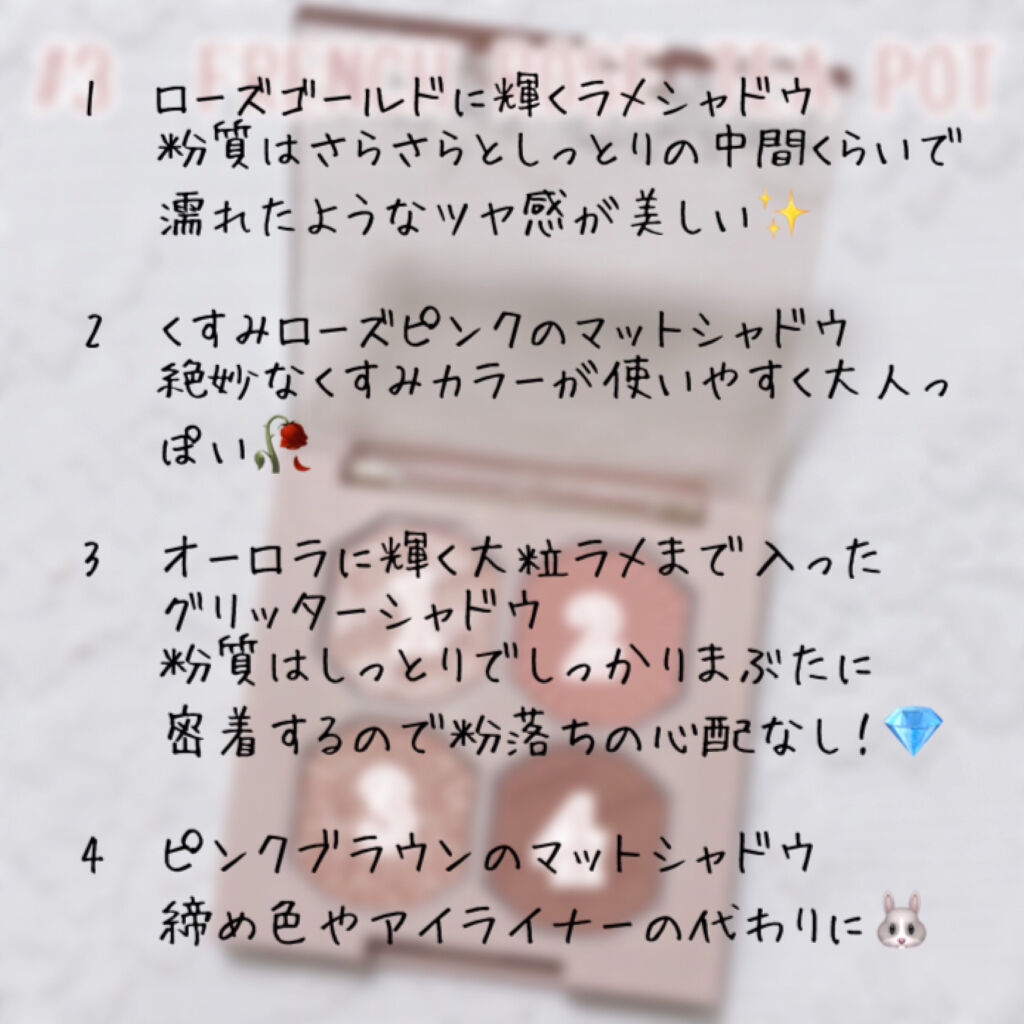 #3 FRENCH ROSE TEA POT
1 ローズゴールドに輝くラメシャドウ
粉質はさらさらとしっとりの中間くらいで
濡れたようなツヤ感が美しい✨
2 くすみローズピンクのマットシャドウ
絶妙なくすみカラーが使いやすく大人っ
ぽい🥀
3 オーロラに輝く大粒ラメまで入った
グリッターシャドウ
粉質はしっとりでしっかりまぶたに
密着するので粉落ちの心配なし!💎
4 ピンクブラウンのマットシャドウ
締め色やアイライナーの代わりに🐰
1 2
3 4